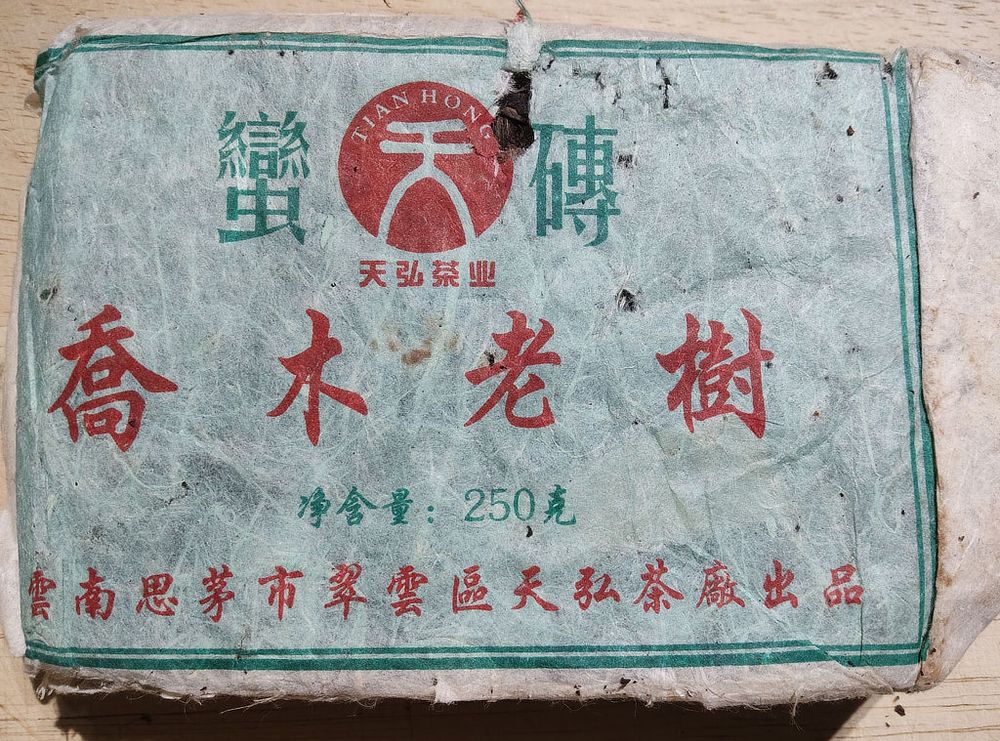 TIAN HONG
蠻 磚
天弘茶业
喬木老樹
净含量：250克
雲南思茅市翠雲區天弘茶廠出品